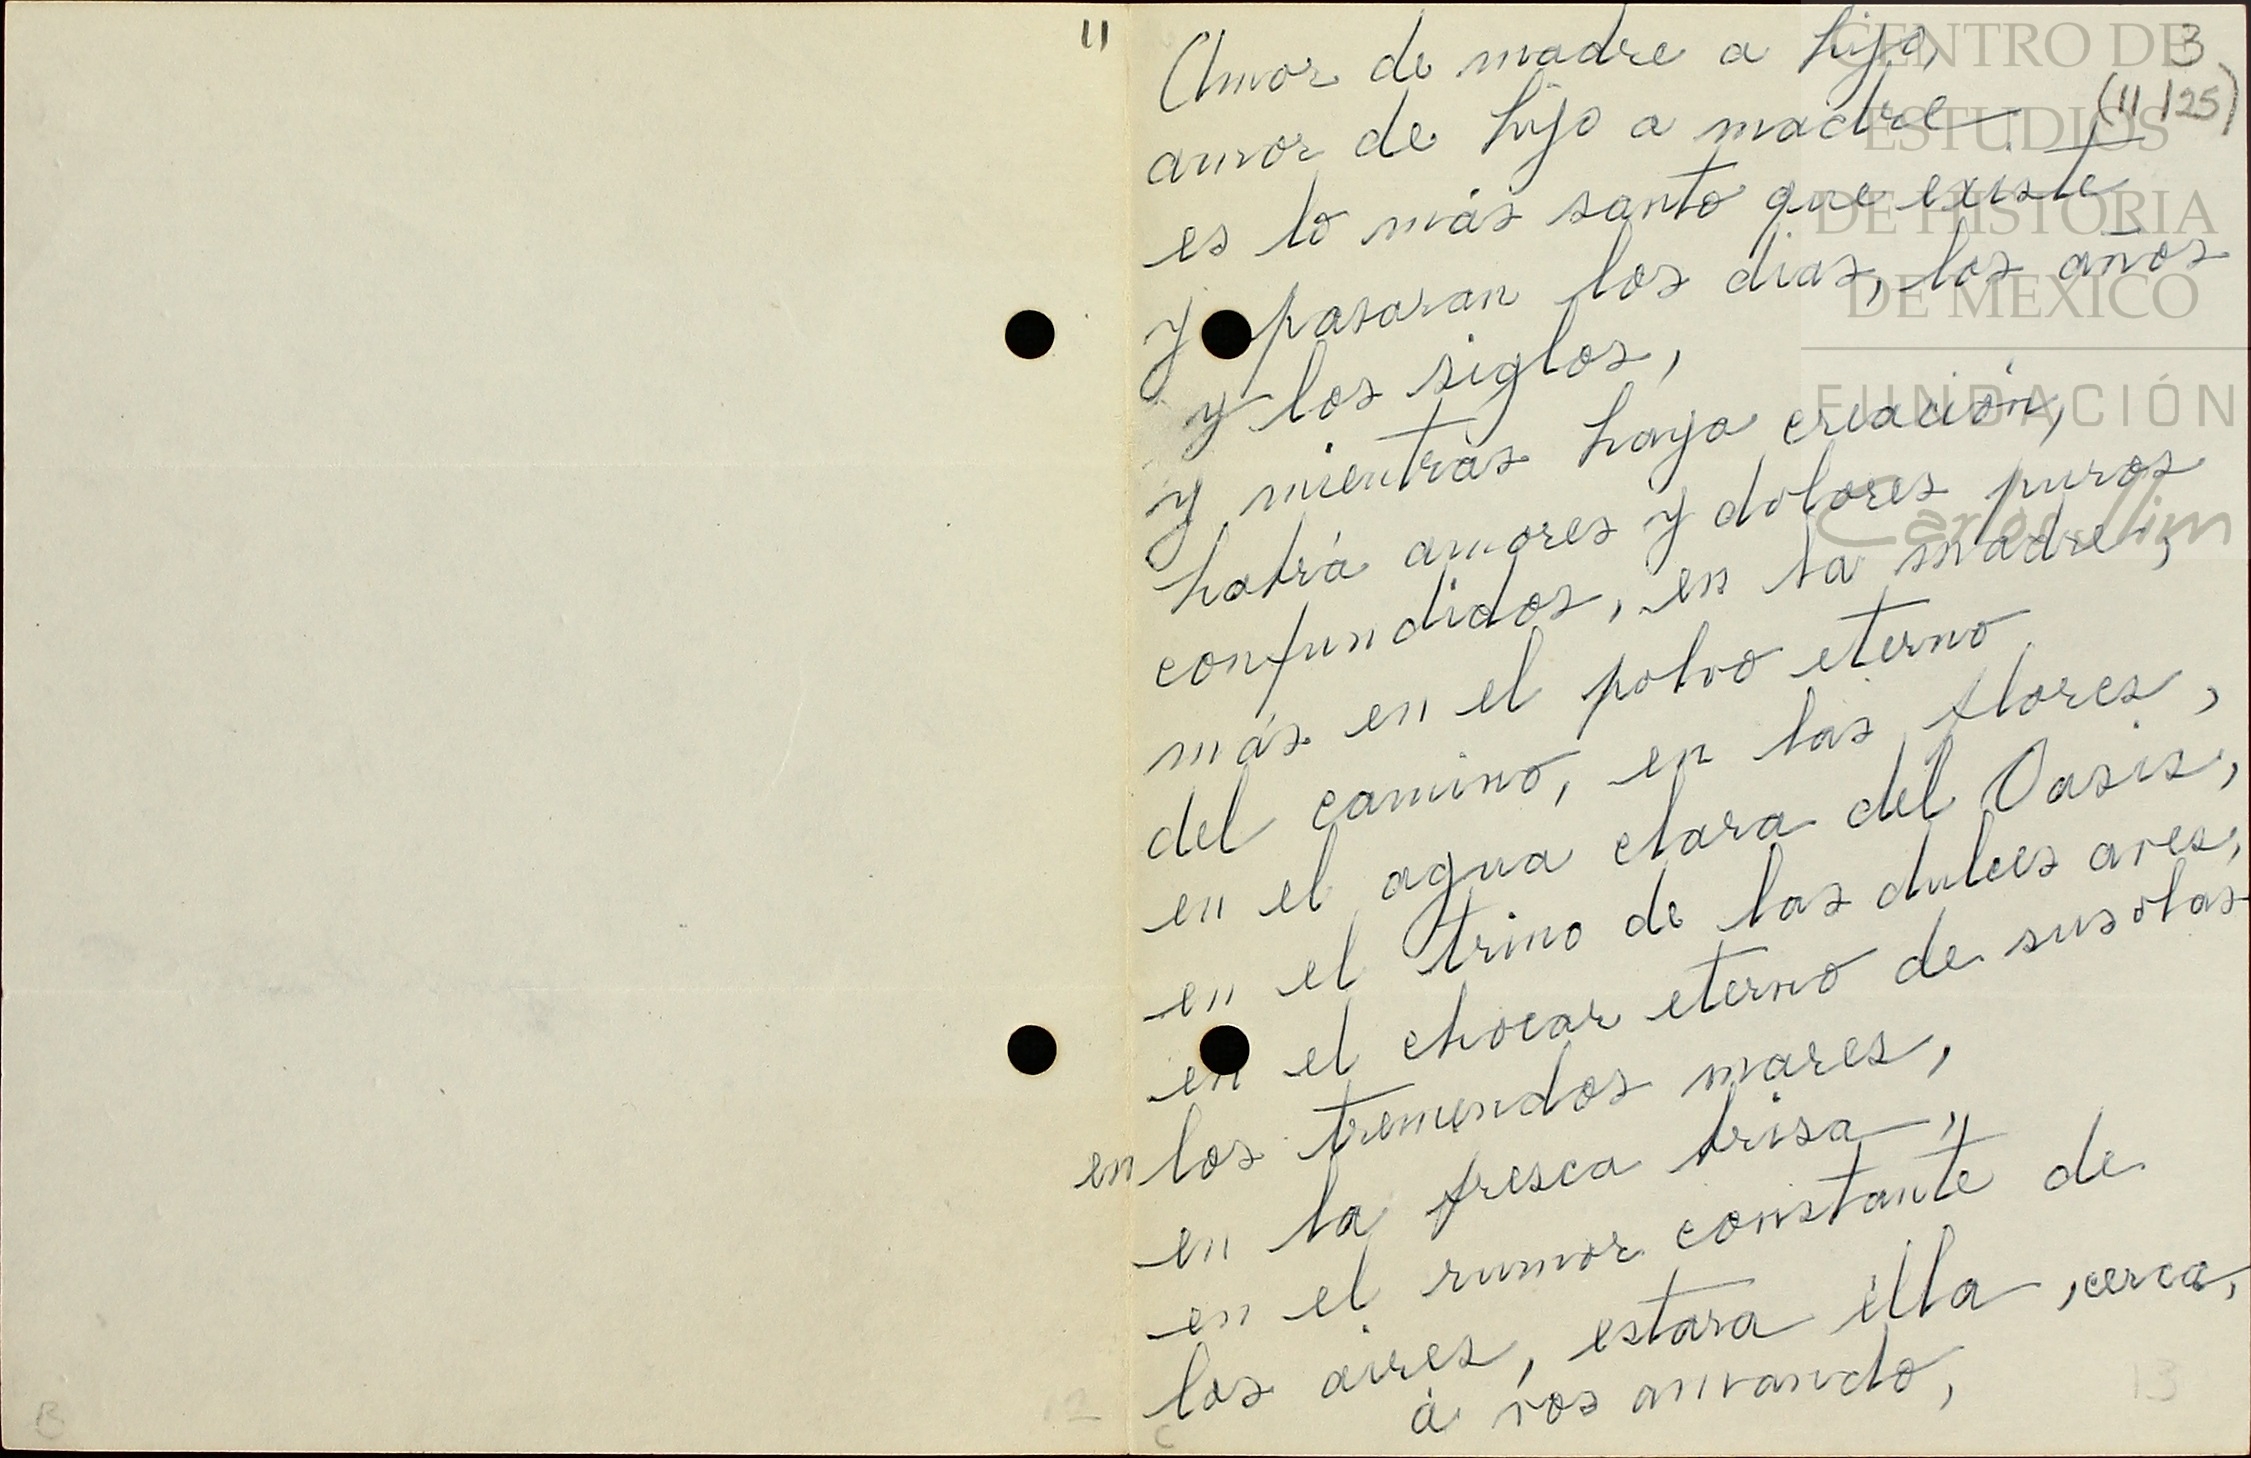 11
3
(11 125)
Amor de madre a hijo,
amor de hijo a madre
es lo más santo que existe
y pasaran los dias, los años
y los siglos,
y mientras haya creación,
habrá amores y dolores puros
confundidos, en la madre,
más en el polvo eterno
del camino, en las flores,
en el agua clara del Oasis,
en el trino de las dulces aves,
en el chocar eterno de sus olas
en los tremendos mares,
en la fresca brisa,
en el rumor constante de
los aires, estara ella, cerca,
á vos mirando,
B
12
C
13
CENTRO DE
ESTUDIOS
DE HISTORIA
DE MEXICO
FUNDACIÓN
Carlos Slim